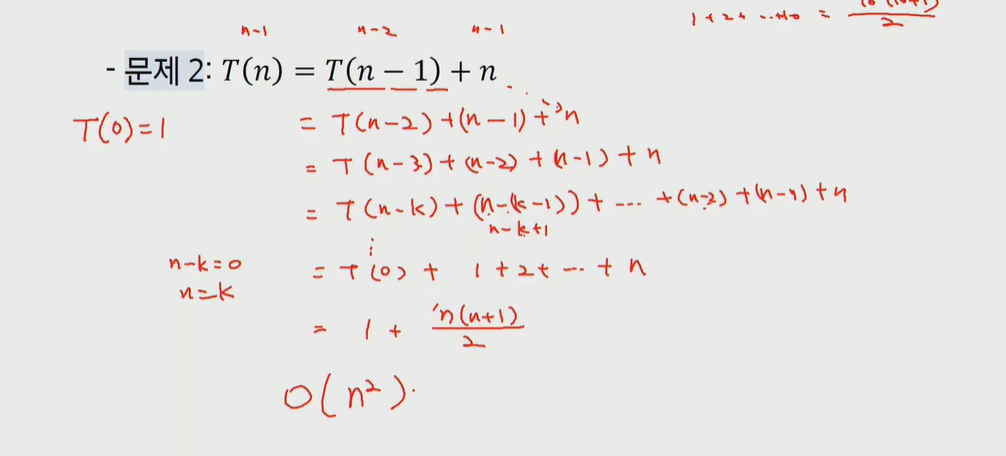 1+2+ ... 10 = 10(10+1)/2
n-1 n-2 n-1
- 문제 2: T(n) = T(n − 1) + n
T(0)=1 = T(n-2)+(n-1)+n
= T(n-3)+(n-2)+(n-1)+n
= T(n-k)+(n-(k-1))+ ... +(n-2)+(n-1)+n
n-k+1
⋮
n-k=0 = T(0)+ 1+2+ ... +n
n=k
= 1+ n(n+1)/2
O(n²).